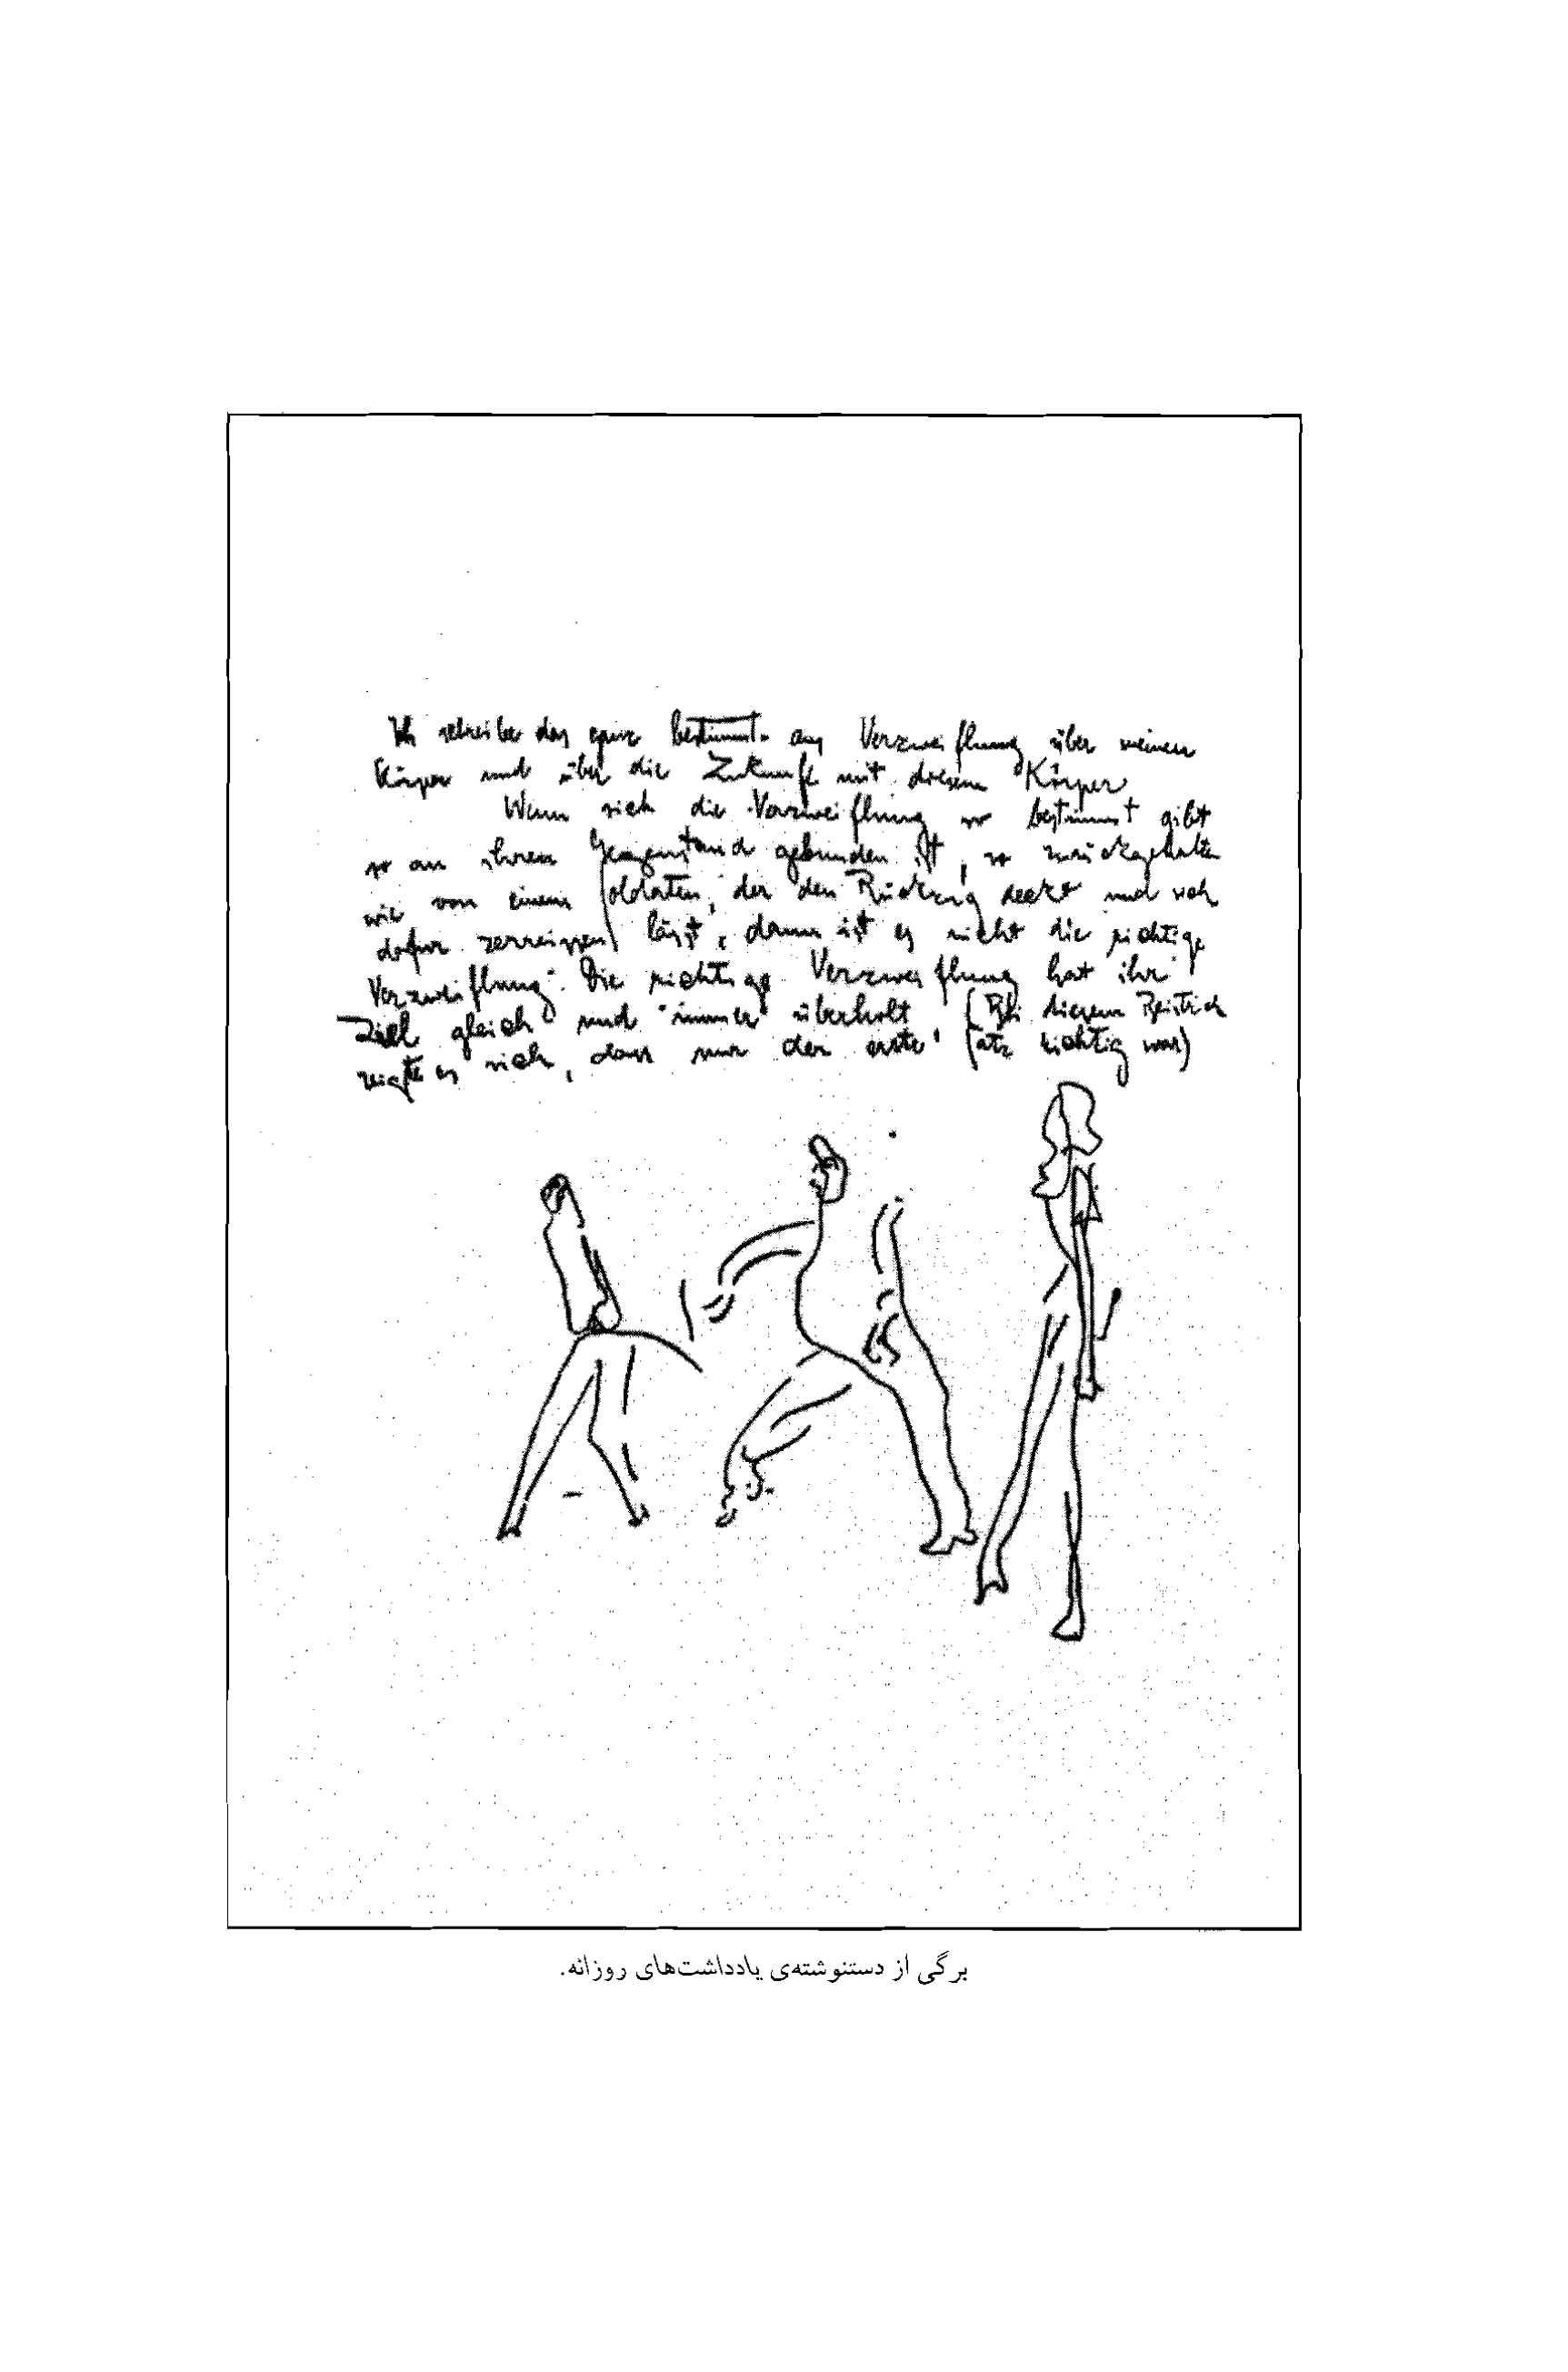 Ich schreibe das ganz bestimmt aus Verzweiflung über meinen
Körper und über die Zukunft mit diesem Körper
Wenn sich die Verzweiflung so bestimmt gibt
so an ihren Gegenstand gebunden ist, so zurückgehalten
wie von einem Soldaten, der den Rückzug deckt und sich
dafür zerreissen lässt, dann ist es nicht die richtige
Verzweiflung. Die richtige Verzweiflung hat ihr
Ziel gleich und immer überholt (Bei diesem Beistrich
zeigte es sich, dass nur der erste Satz richtig war)
برگی از دستنوشته‌ی یادداشت‌های روزانه.